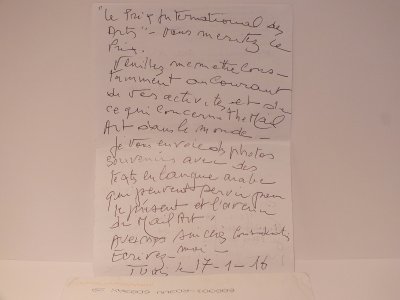 "Le Prix International des
Arts" - vous meritez ce
Prix.
Veuillez me mettre cons-
tamment au courant
de vos activités et de
ce qui concerne the Mail
Art dans le monde -
Je vous envoie des photos
souvenirs avec des
textes en langue arabe
qui peuvent servir pour
le présent et l'avenir
du Mail Art !
Avec mes sincères
Ecrivez - moi -
le 17-1-16